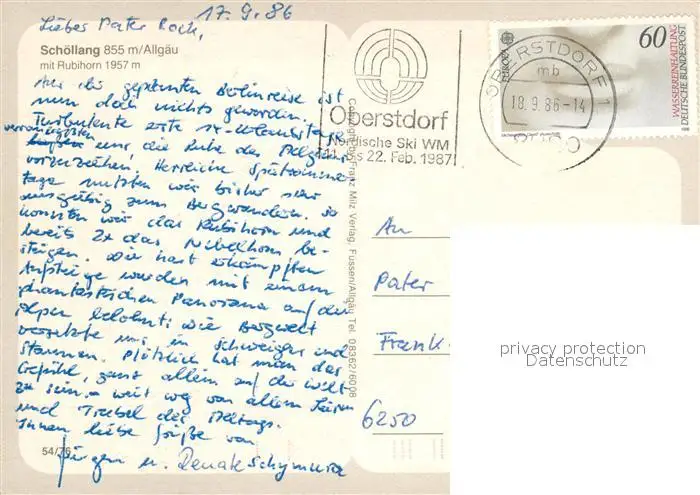 17.9.86
Liebes Pater Rock,
Schöllang 855 m/Allgäu
mit Rubihorn 1957 m
Aus der geplanten Berlinreise ist
nun doch nichts geworden.
Turbulente erste
veranlassten uns die Ruhe des Allgäus
vorzuziehen. Herrliche Spätsommer-
tage nutzten wir bisher sehr
ausgiebig zum Bergwandern. So
konnten wir das Rubihorn und
bereits 2x das Nebelhorn be-
steigen. Die hart erkämpften
Aufstiege wurden mit einem
phantastischen Panorama auf die
Alpen belohnt: die Bergwelt
versetzte uns in Schweigen und
Staunen. Plötzlich hat man das
Gefühl, ganz allein auf der Welt
zu sein - weit weg von allem Lärm
und Trubel des Alltags.
Ihnen liebe Grüße von
Jürgen u. Renate Schymura
54/76
Copyright by Franz Milz Verlag, Fussen/Allgäu Tel. 08362/6008
Oberstdorf
Nordische Ski WM
11. bis 22. Feb. 1987
OBERSTDORF 1
mb
18.9.86-14
EUROPA
60
WASSERREINHALTUNG
DEUTSCHE BUNDESPOST
An
Pater
Frank
6250
privacy protection
Datenschutz